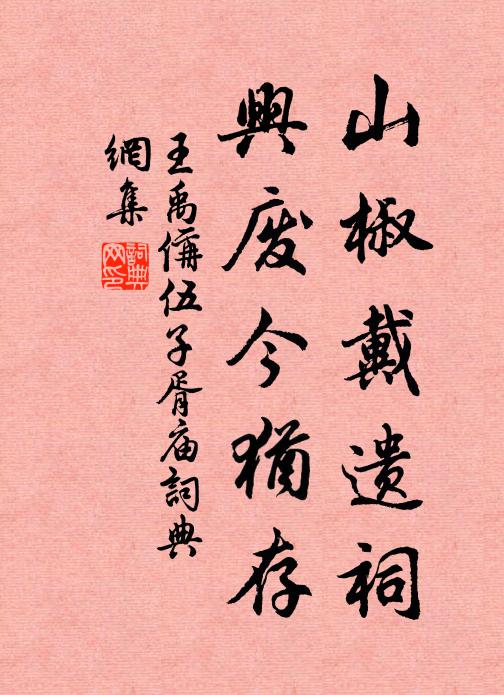 山椒戴遗祠
興废今猶存
王禹偁伍子胥庙詞典
網集
詞典网印